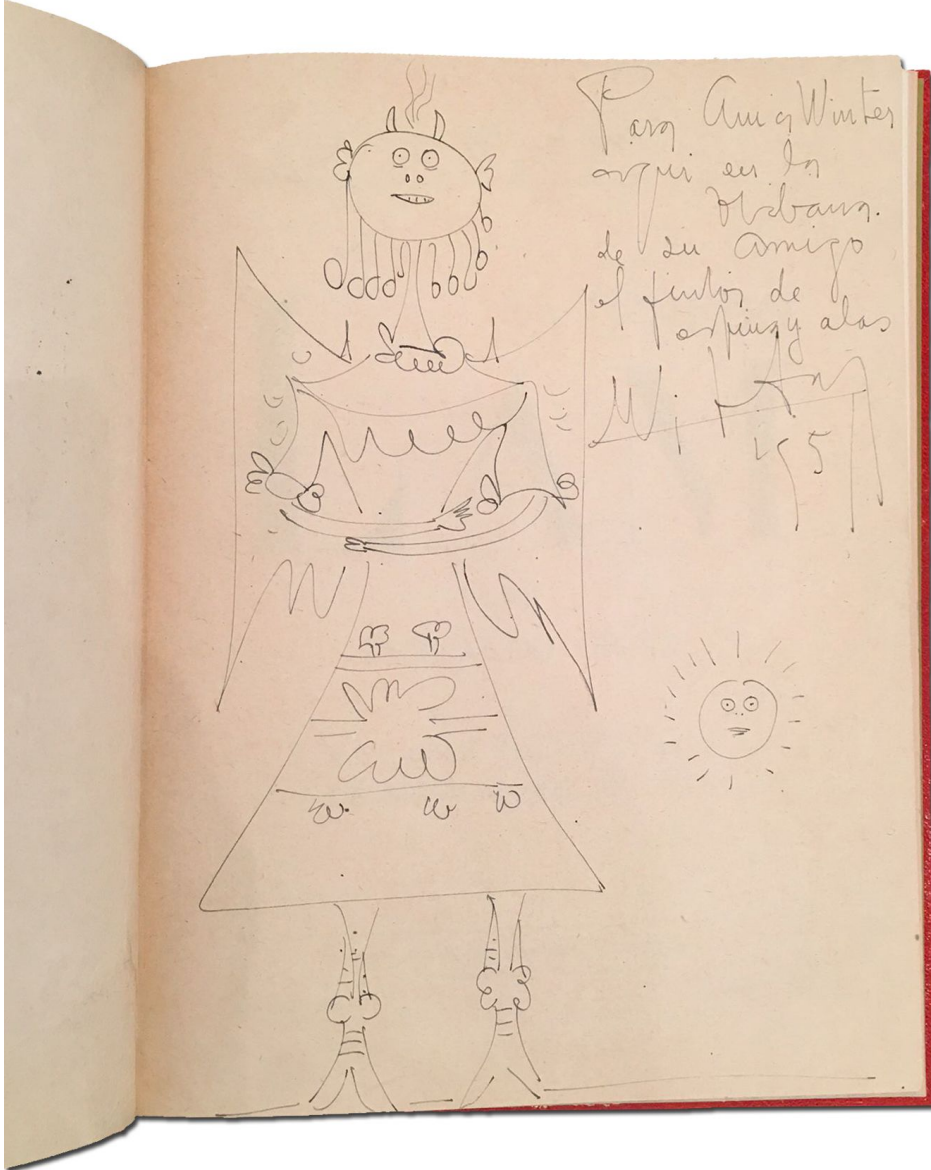 Para Ania Winter
aqui en la
Habana.
de su amigo
el pintor de
espina y alas
Wi Lam
55